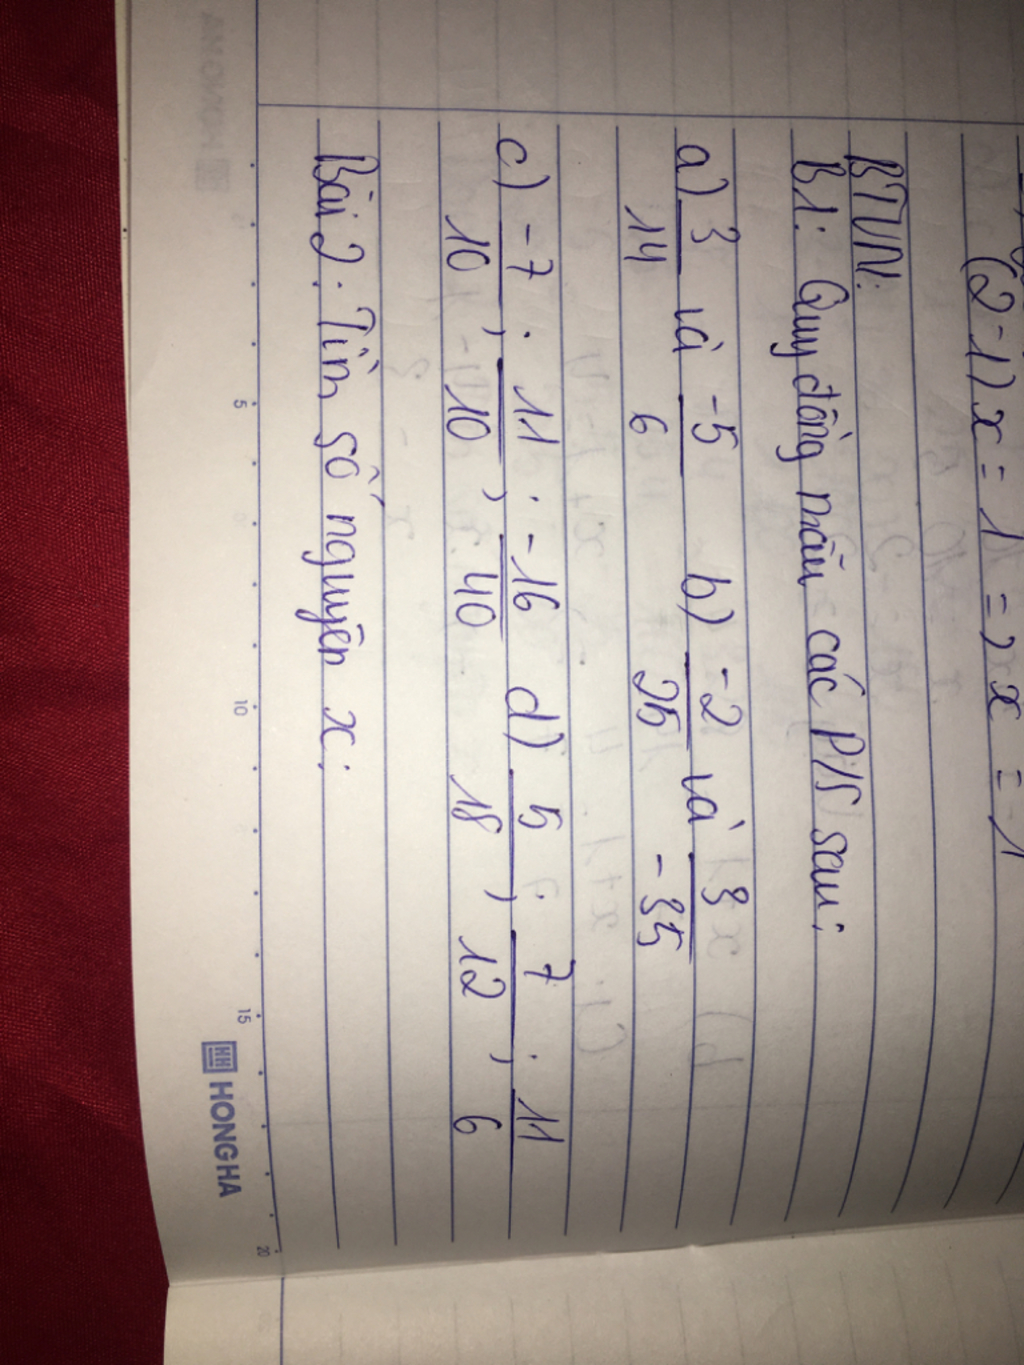 (2-1)x = 1 => x = 1
BTVN:
B1: Quy đồng mẫu các P/S sau:
a) 3/14 và -5/6 b) -2/25 và 8/-35
c) -7/10 ; 11/10 ; -16/40 d) 5/18 ; 7/12 ; 11/6
Bài 2: Tìm số nguyên x:
5 10 15 20
HH HONG HA